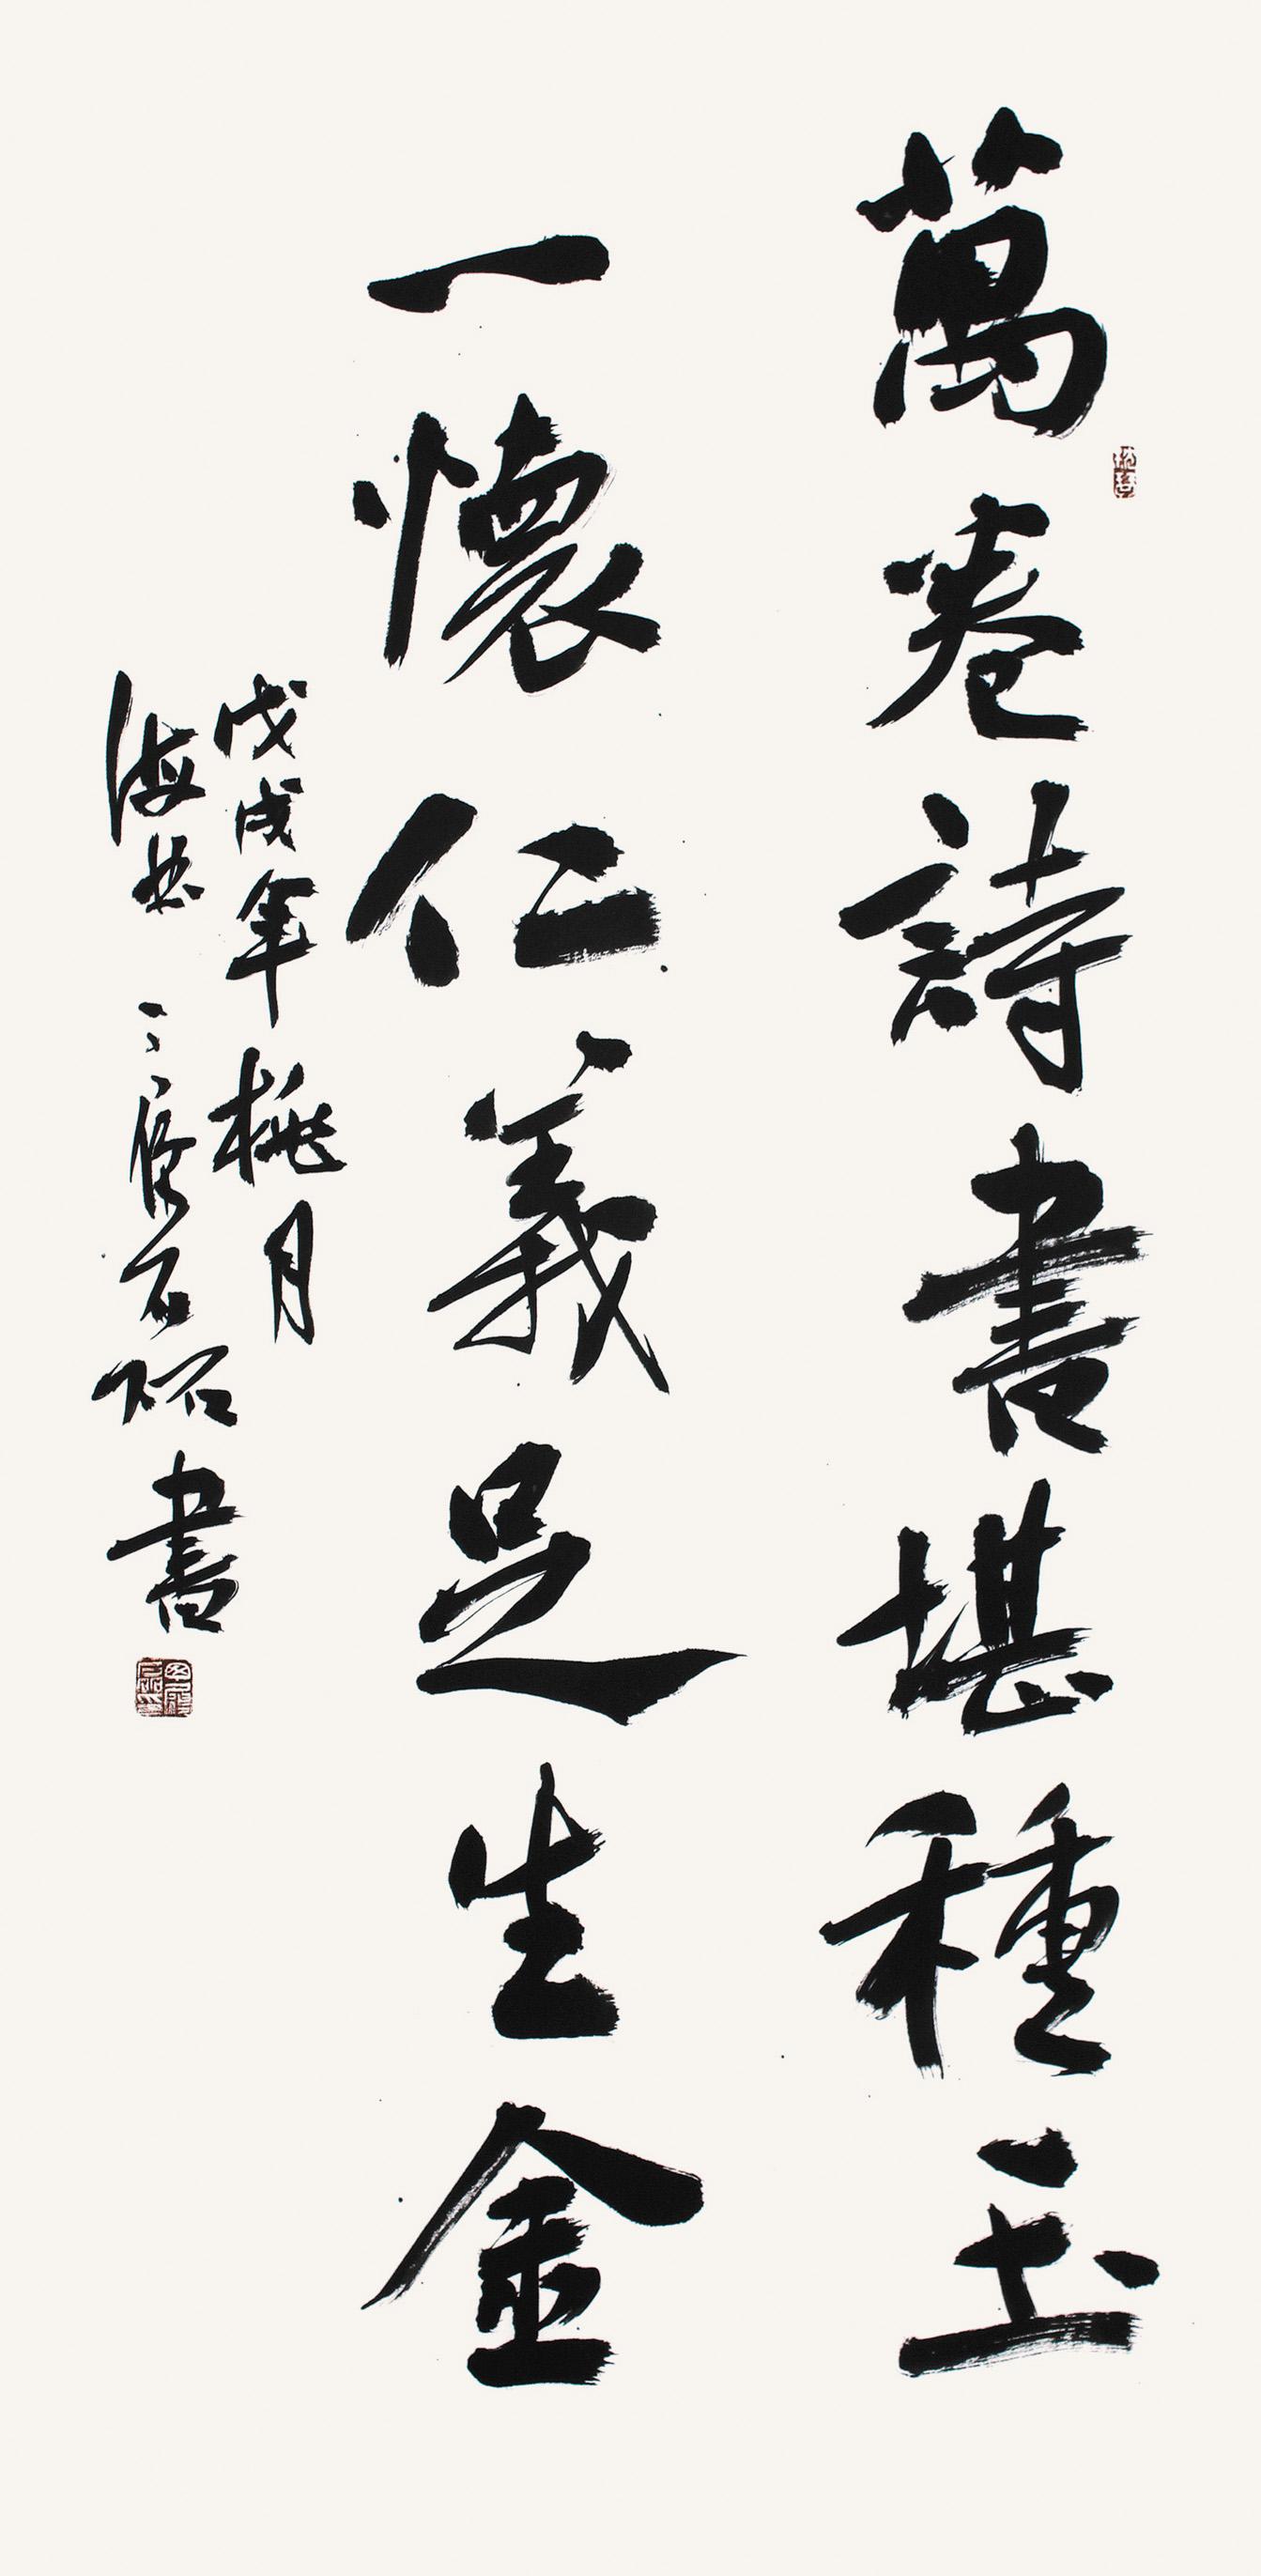 萬卷詩書堪種玉
一懷仁義足生金
戊戌年桃月
海丛
書